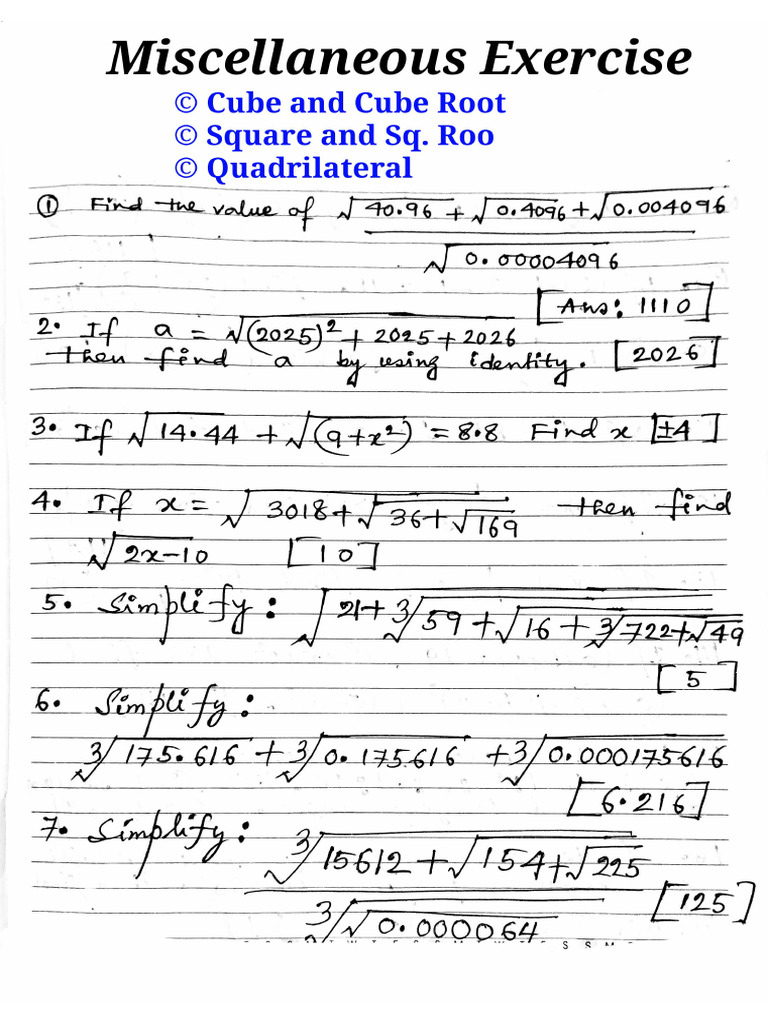 Miscellaneous Exercise
© Cube and Cube Root
© Square and Sq. Roo
© Quadrilateral
① Find the value of √40.96 + √0.4096 + √0.004096
√0.00004096
[Ans: 1110]
2. If a = √(2025)² + 2025 + 2026
then find a by using identity. [2026]
3. If √14.44 + √(9+x²) = 8.8 Find x [±4]
4. If x = √3018+√36+√169 then find
√2x-10 [10]
5. Simplify: √21+∛59+√16+∛722+√49
[5]
6. Simplify:
∛175.616 + ∛0.175616 + ∛0.000175616
[6.216]
7. Simplify: ∛15612+√154+√225
∛√0.000064 [125]